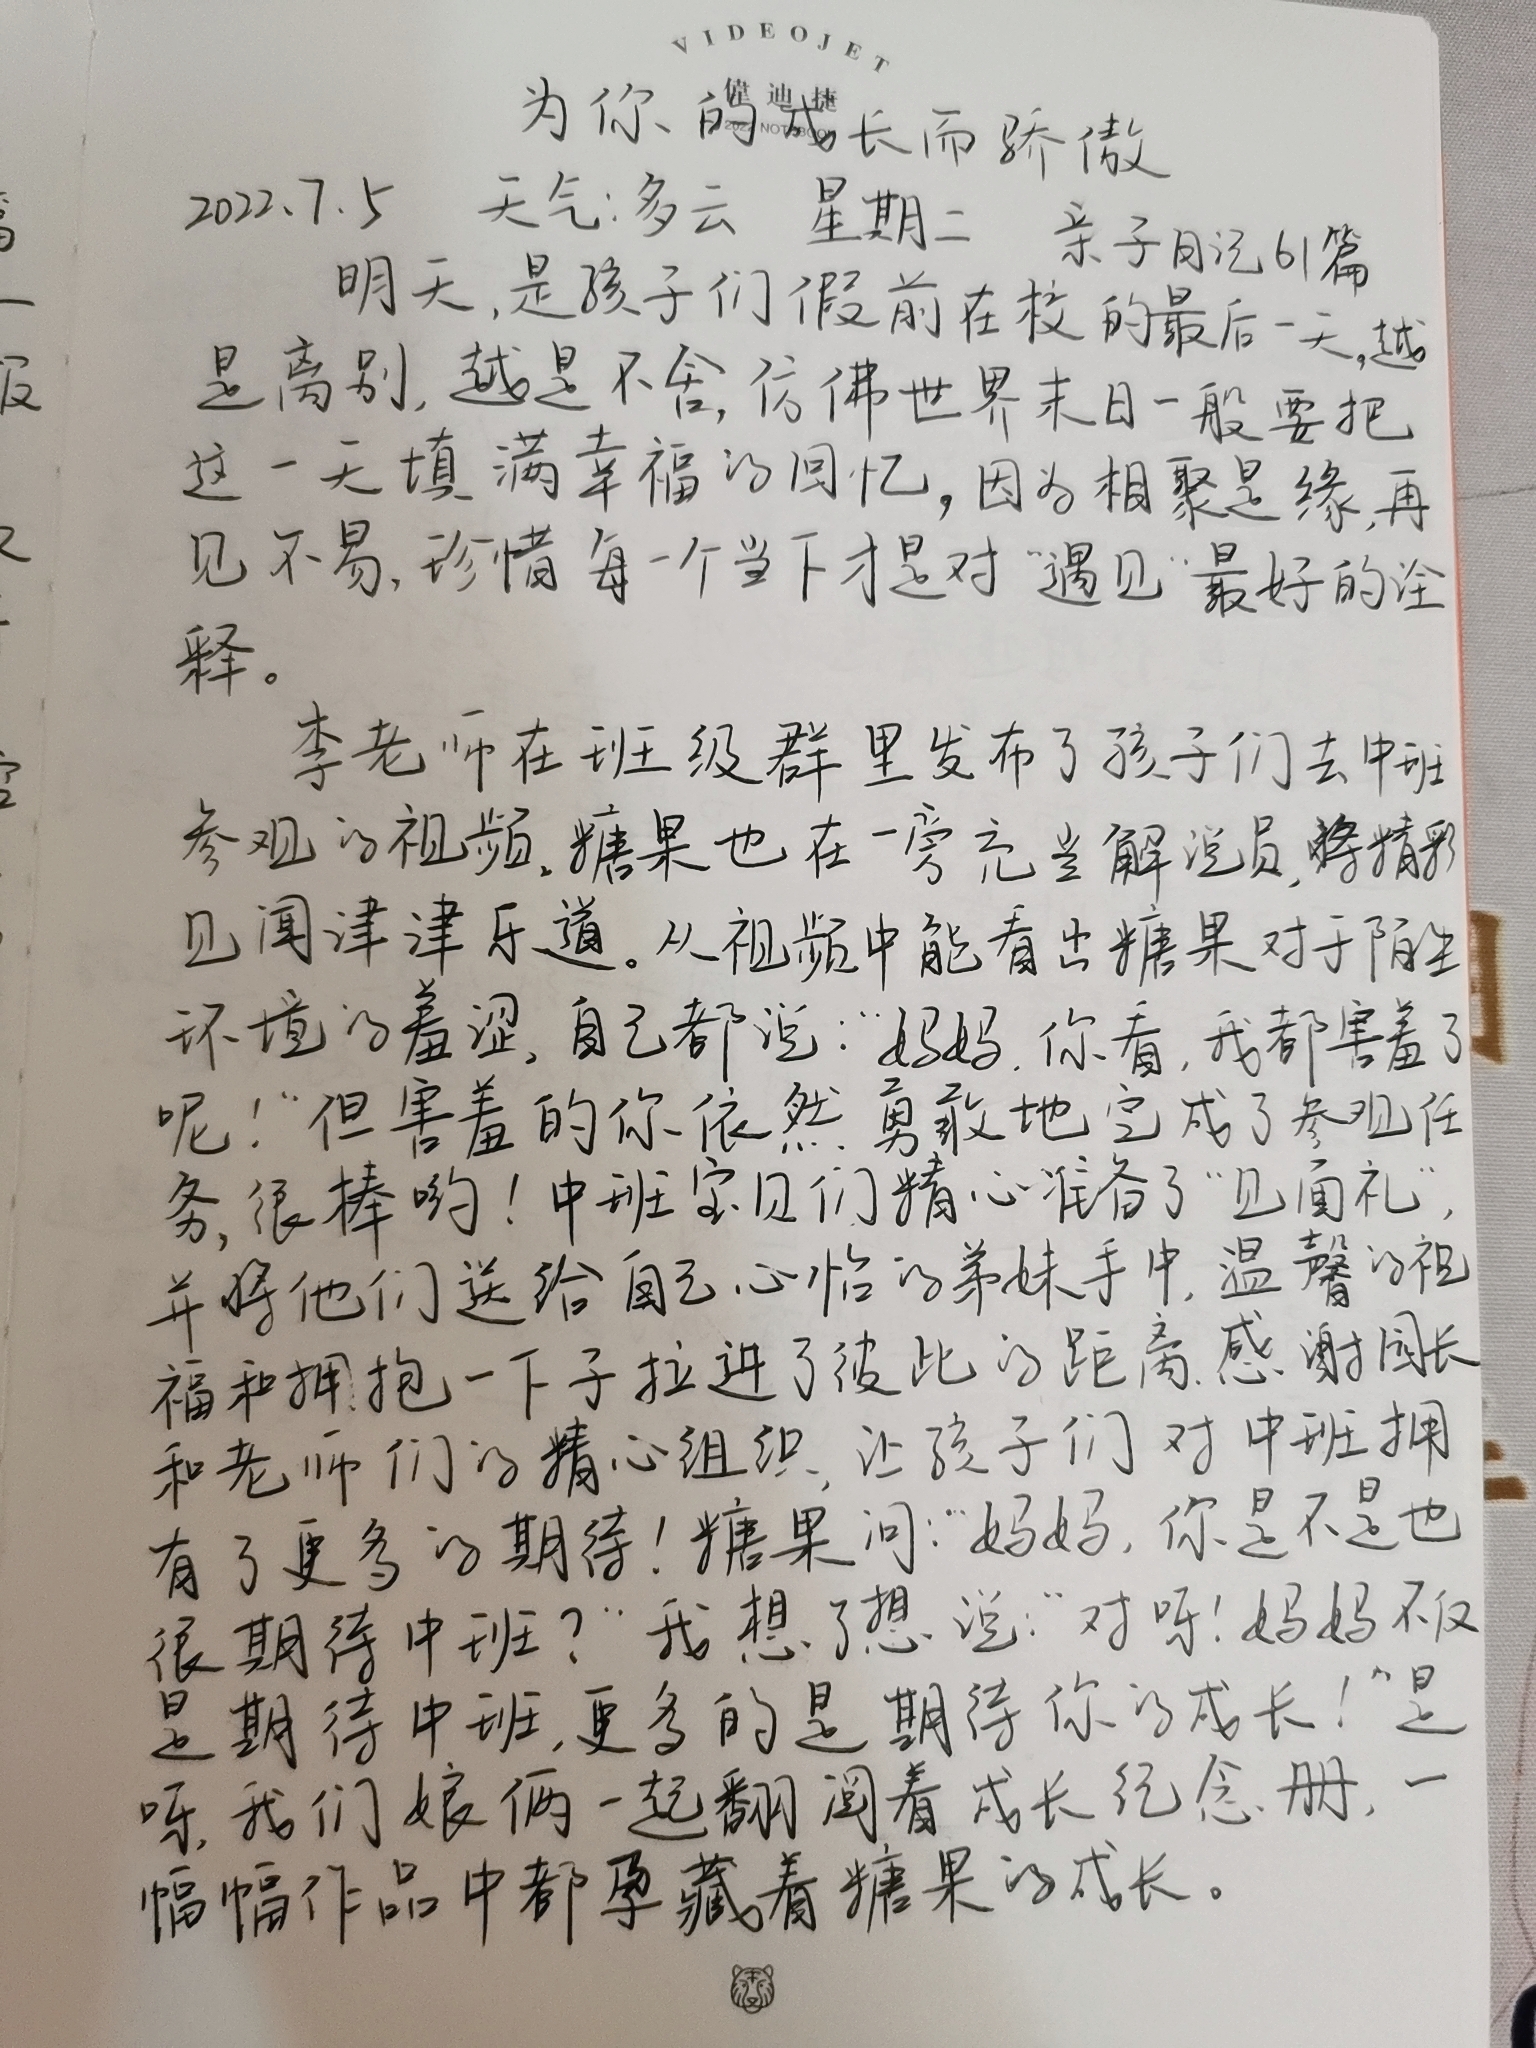 VIDEOJET
偉迪捷
2022 NOTEBOOK
为你的成长而骄傲
2022.7.5 天气:多云 星期二 亲子日记61篇
明天,是孩子们假前在校的最后一天,越
是离别,越是不舍,仿佛世界末日一般要把
这一天填满幸福的回忆,因为相聚是缘,再
见不易,珍惜每一个当下才是对“遇见”最好的诠
释。
李老师在班级群里发布了孩子们去中班
参观的视频,糖果也在一旁充当解说员,将精彩
见闻津津乐道。从视频中能看出糖果对于陌生
环境的羞涩,自己都说:“妈妈,你看,我都害羞了
呢!”但害羞的你依然勇敢地完成了参观任
务,很棒哟!中班宝贝们精心准备了“见面礼”,
并将他们送给自己心怡的弟妹手中,温馨的祝
福和拥抱一下子拉进了彼此的距离,感谢园长
和老师们的精心组织,让孩子们对中班拥
有了更多的期待!糖果问:“妈妈,你是不是也
很期待中班?”我想了想说:“对呀!妈妈不仅
是期待中班,更多的是期待你的成长!”是
呀,我们娘俩一起翻阅着成长纪念册,一
幅幅作品中都孕藏着糖果的成长。